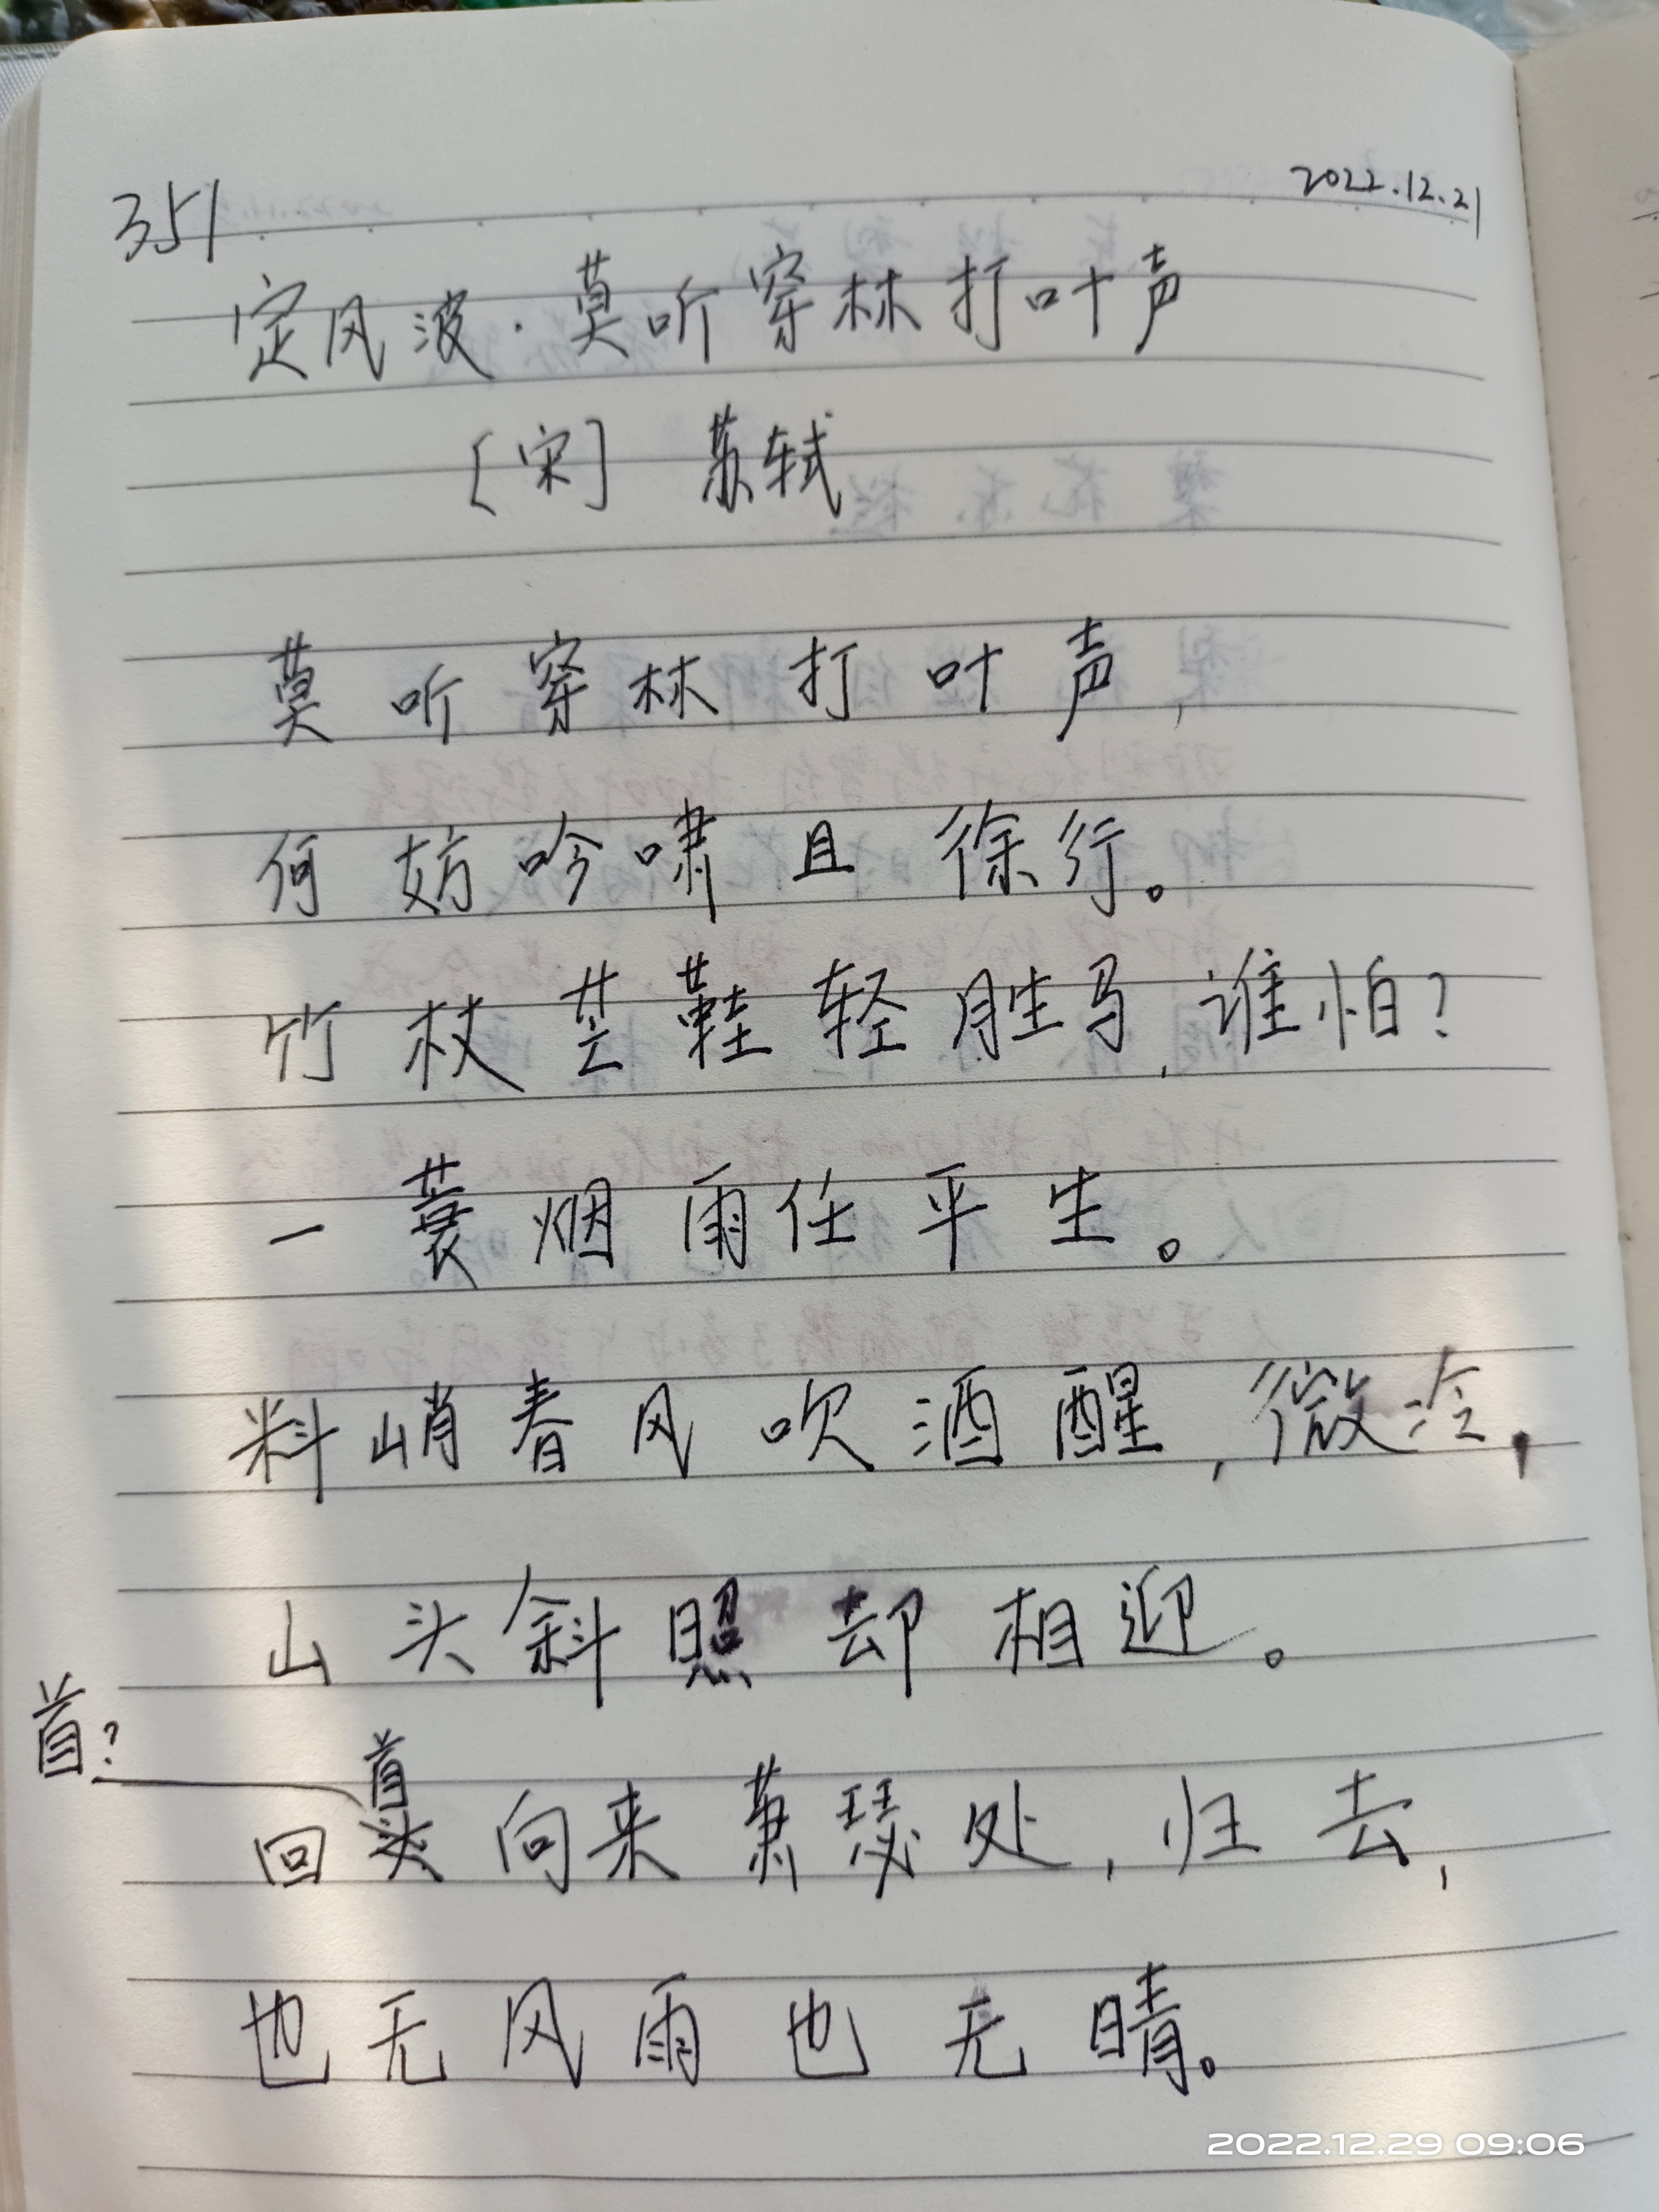 351
2022.12.21
定风波·莫听穿林打叶声
[宋] 苏轼
莫听穿林打叶声,
何妨吟啸且徐行。
竹杖芒鞋轻胜马,谁怕?
一蓑烟雨任平生。
料峭春风吹酒醒,微冷,
山头斜照却相迎。
首?
首
回头向来萧瑟处,归去,
也无风雨也无晴。
2022.12.29 09:06